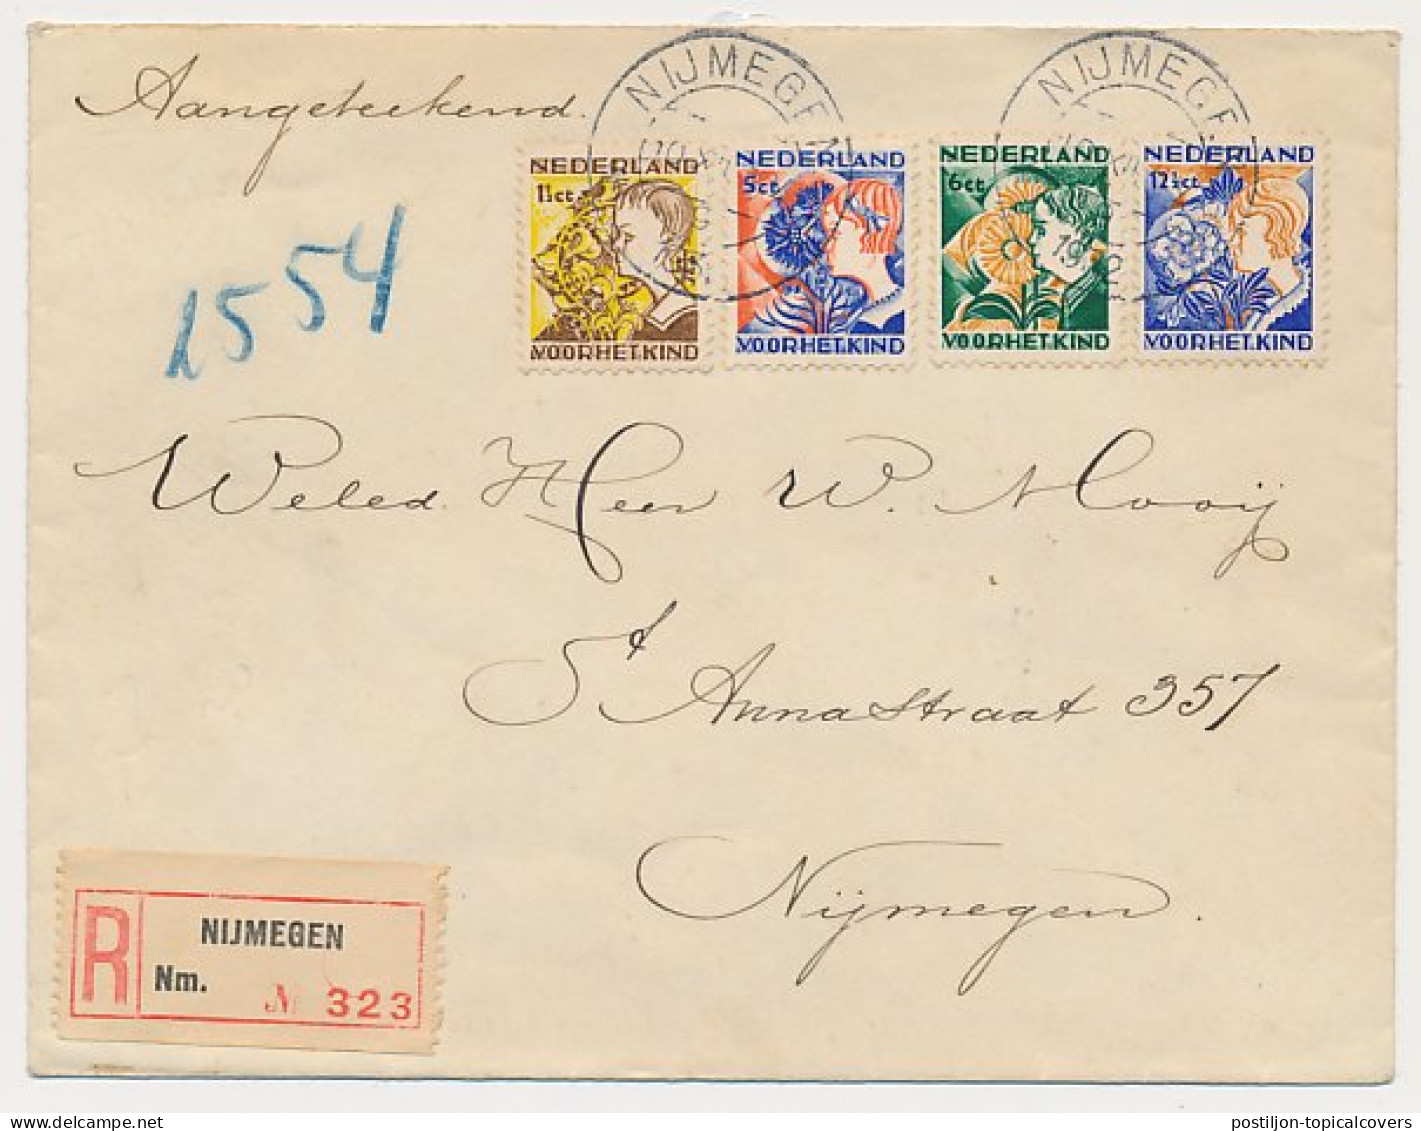 Aangeteekend.
NIJMEGEN
NIJMEGEN
NEDERLAND
1½ct
VOORHET.KIND
NEDERLAND
5ct
VOORHET.KIND
NEDERLAND
6ct
VOORHET.KIND
NEDERLAND
12½ct
VOORHET.KIND
1554
Weled. Heer W. Mooij
St Annastraat 357
Nijmegen.
R
NIJMEGEN
Nm.
№ 323
postiljon-topicalcovers